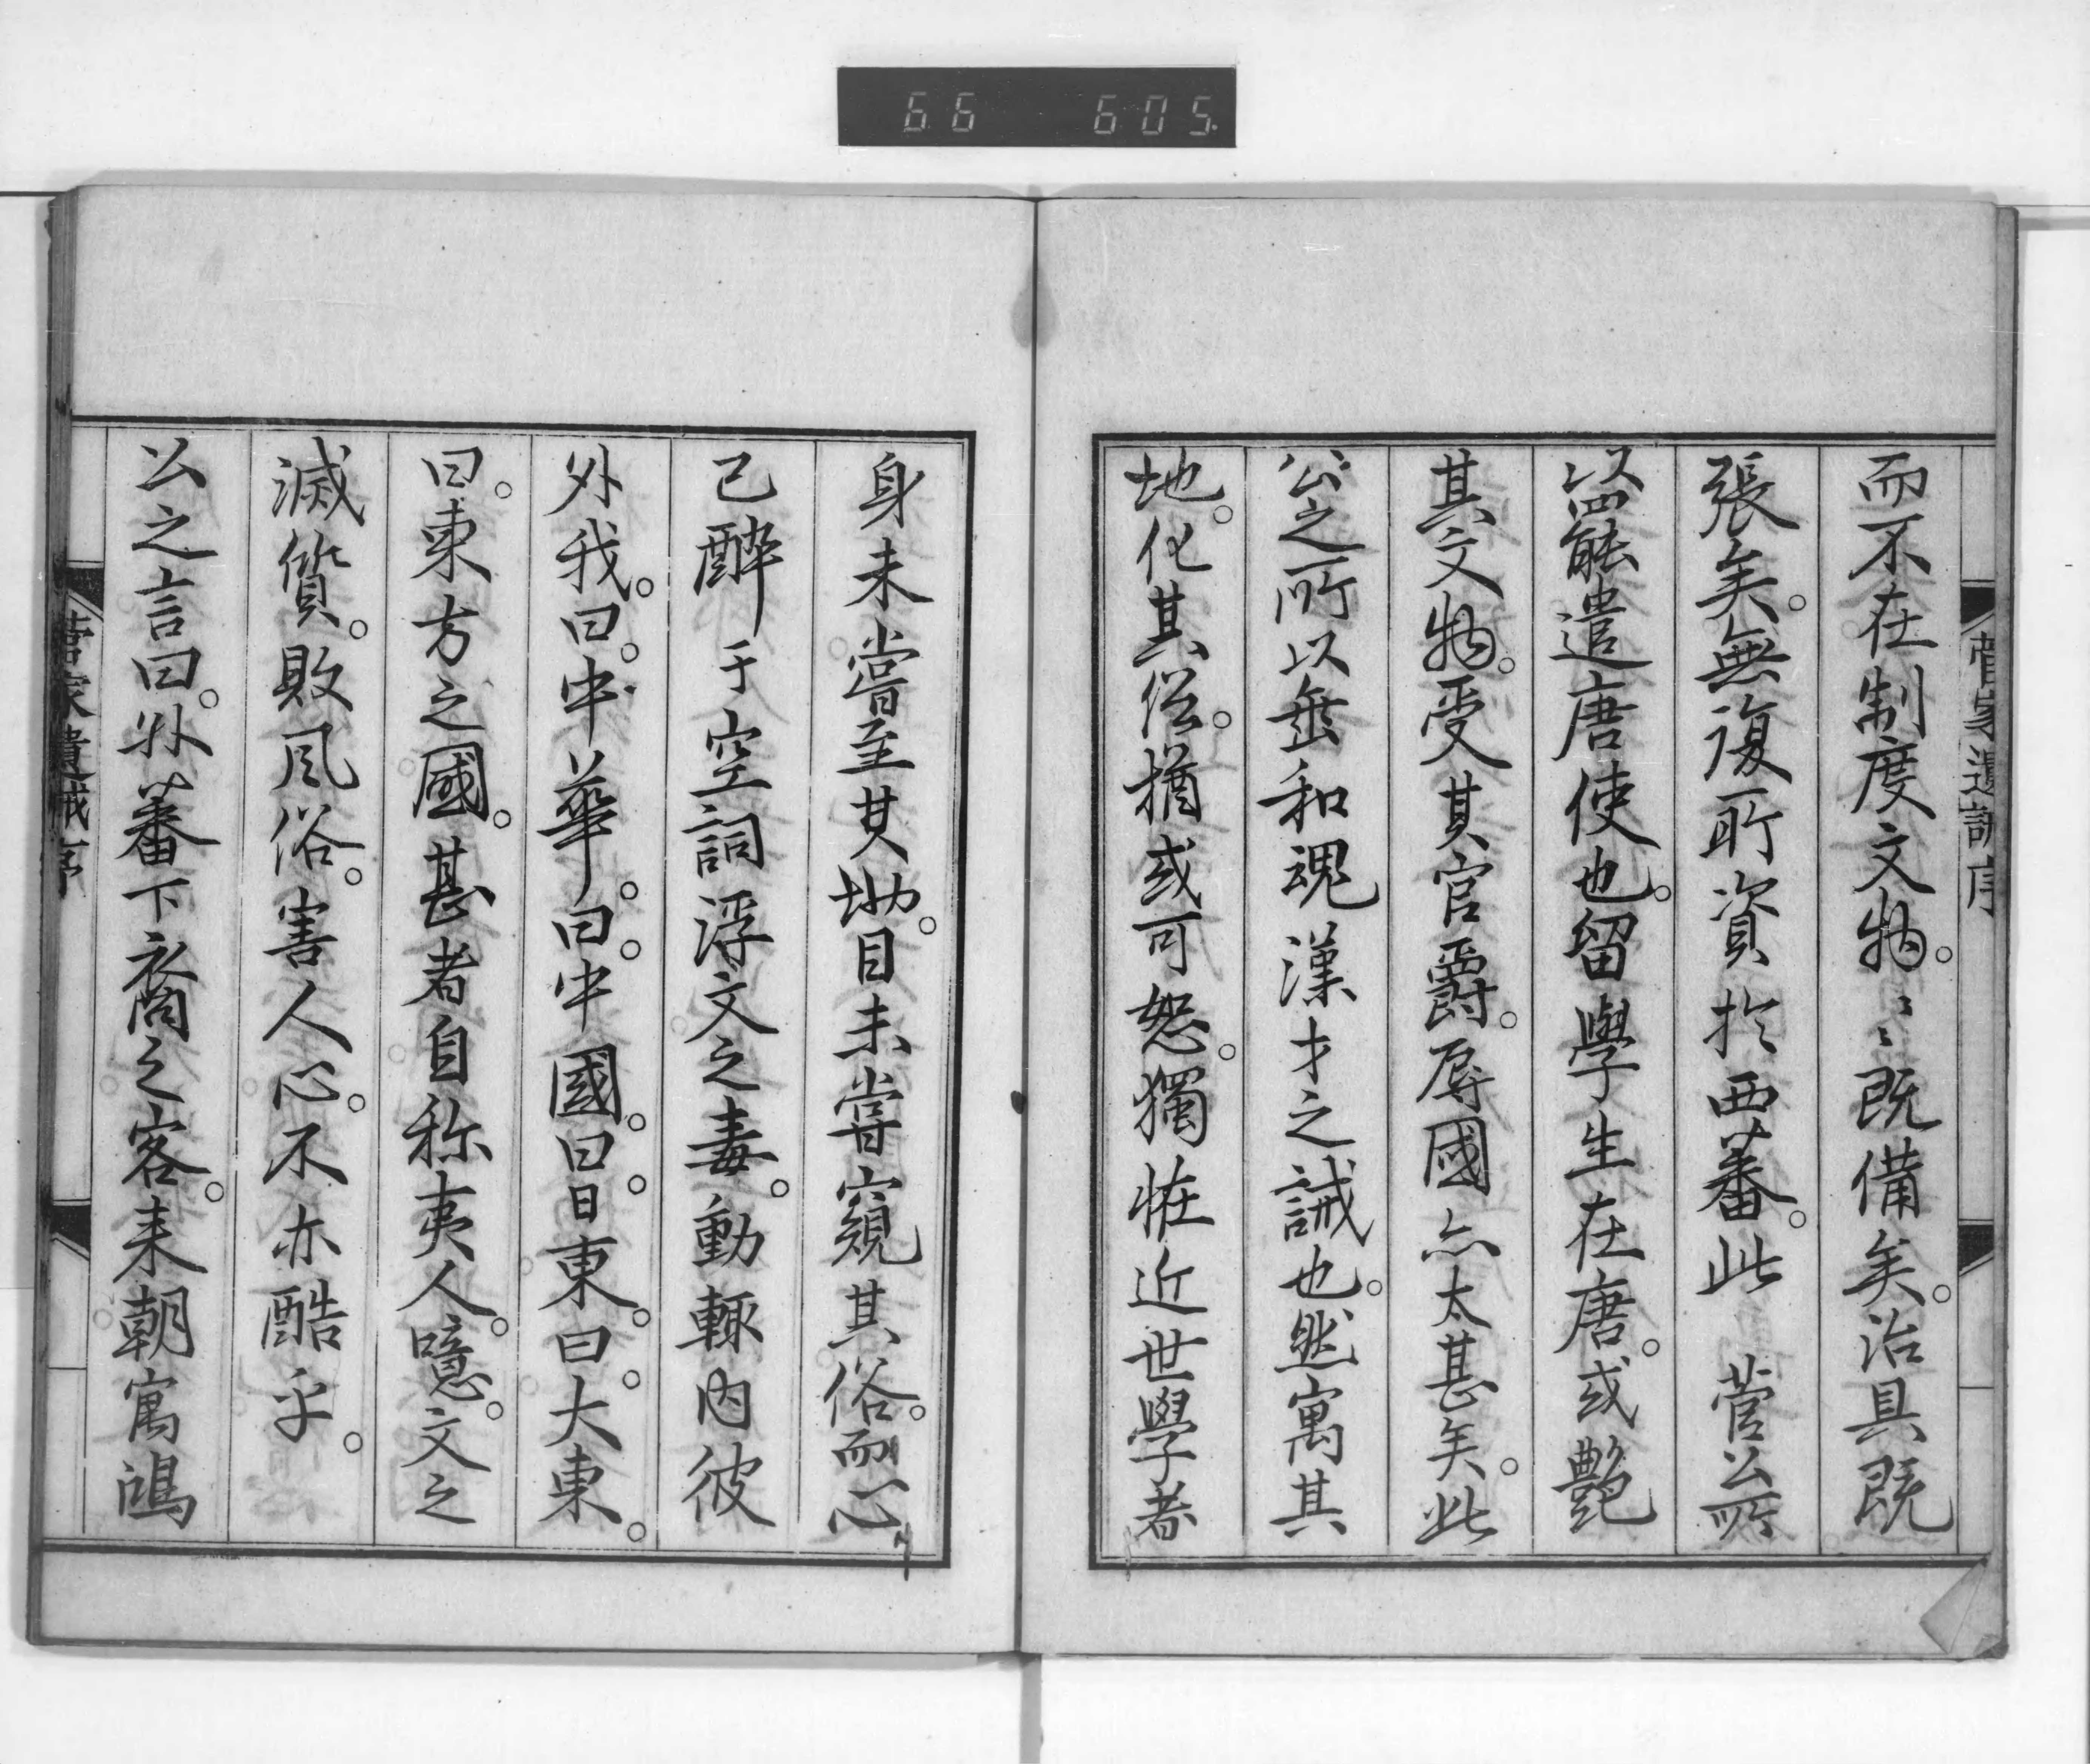 66 605.
菅家遺誡序
而不在制度文物。〻〻既備矣。治具既
張矣。無復所資於西蕃。此 菅公所
以罷遣唐使也。留學生在唐。或艶
其文物。受其官爵。辱國亦太甚矣。此
公之所以垂和魂漢才之誡也。然寓其
地。化其俗。猶或可恕。獨怪近世學者
身未嘗至其地。目未嘗窺其俗。而心
已酔于空詞浮文之毒。動輙内彼
外我。曰。中華。曰。中國。曰。日東。曰。大東。
曰。東方之國。甚者自称夷人。噫。文之
滅質。敗風俗。害人心。不亦酷乎。
公之言曰。外蕃下裔之客。来朝寓鴻
菅家遺誡序